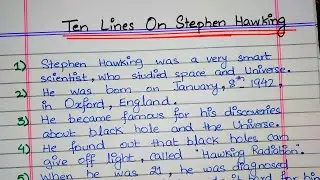 Ten Lines On Stephen Hawking
1) Stephen Hawking was a very smart
scientist, who studied space and Universe.
2) He was born on January, 8th 1942,
in Oxford, England.
3) He became famous for his discoveries
about black hole and the Universe.
4) He found out that black holes can
give off light, called "Hawking Radiation"
5) When he was 21, he was diagnosed